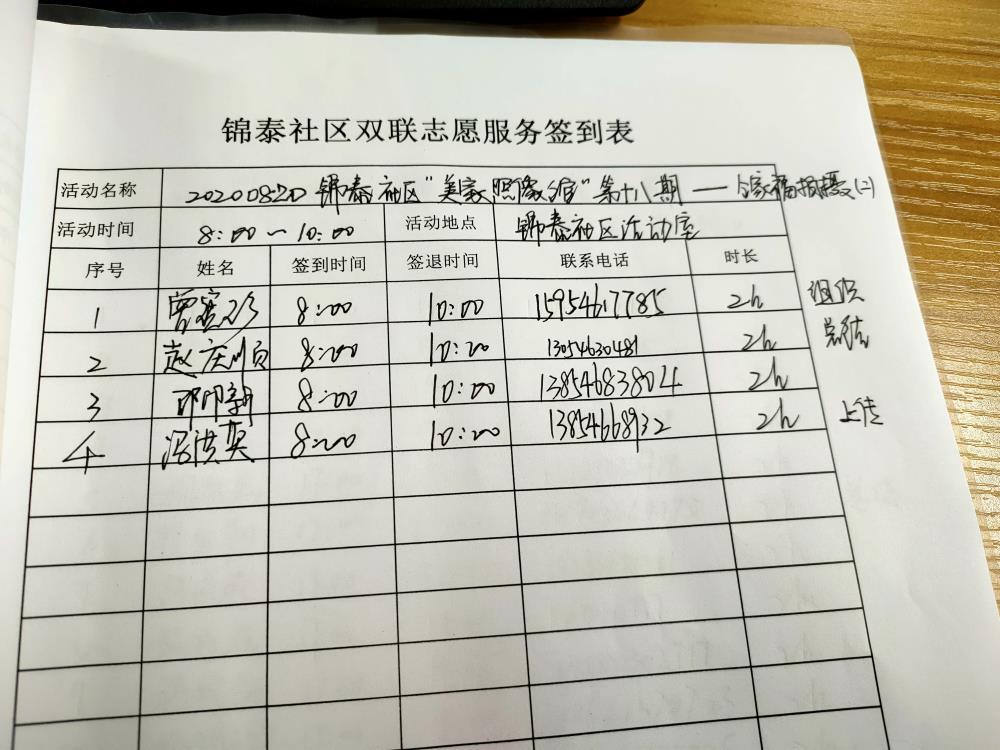 锦泰社区双联志愿服务签到表
活动名称 20200820 锦泰社区"美家照像馆"第十八期——全家福拍摄(二)
活动时间 8:00~10:00 活动地点 锦泰社区活动室
序号 姓名 签到时间 签退时间 联系电话 时长
1 曾宪珍 8:00 10:00 15954617785 2h 组织
2 赵庆顺 8:00 10:00 13054630481 2h 总结
3 邓印新 8:00 10:00 13854683804 2h
4 冯洪奥 8:00 10:00 13854668932 2h 上传